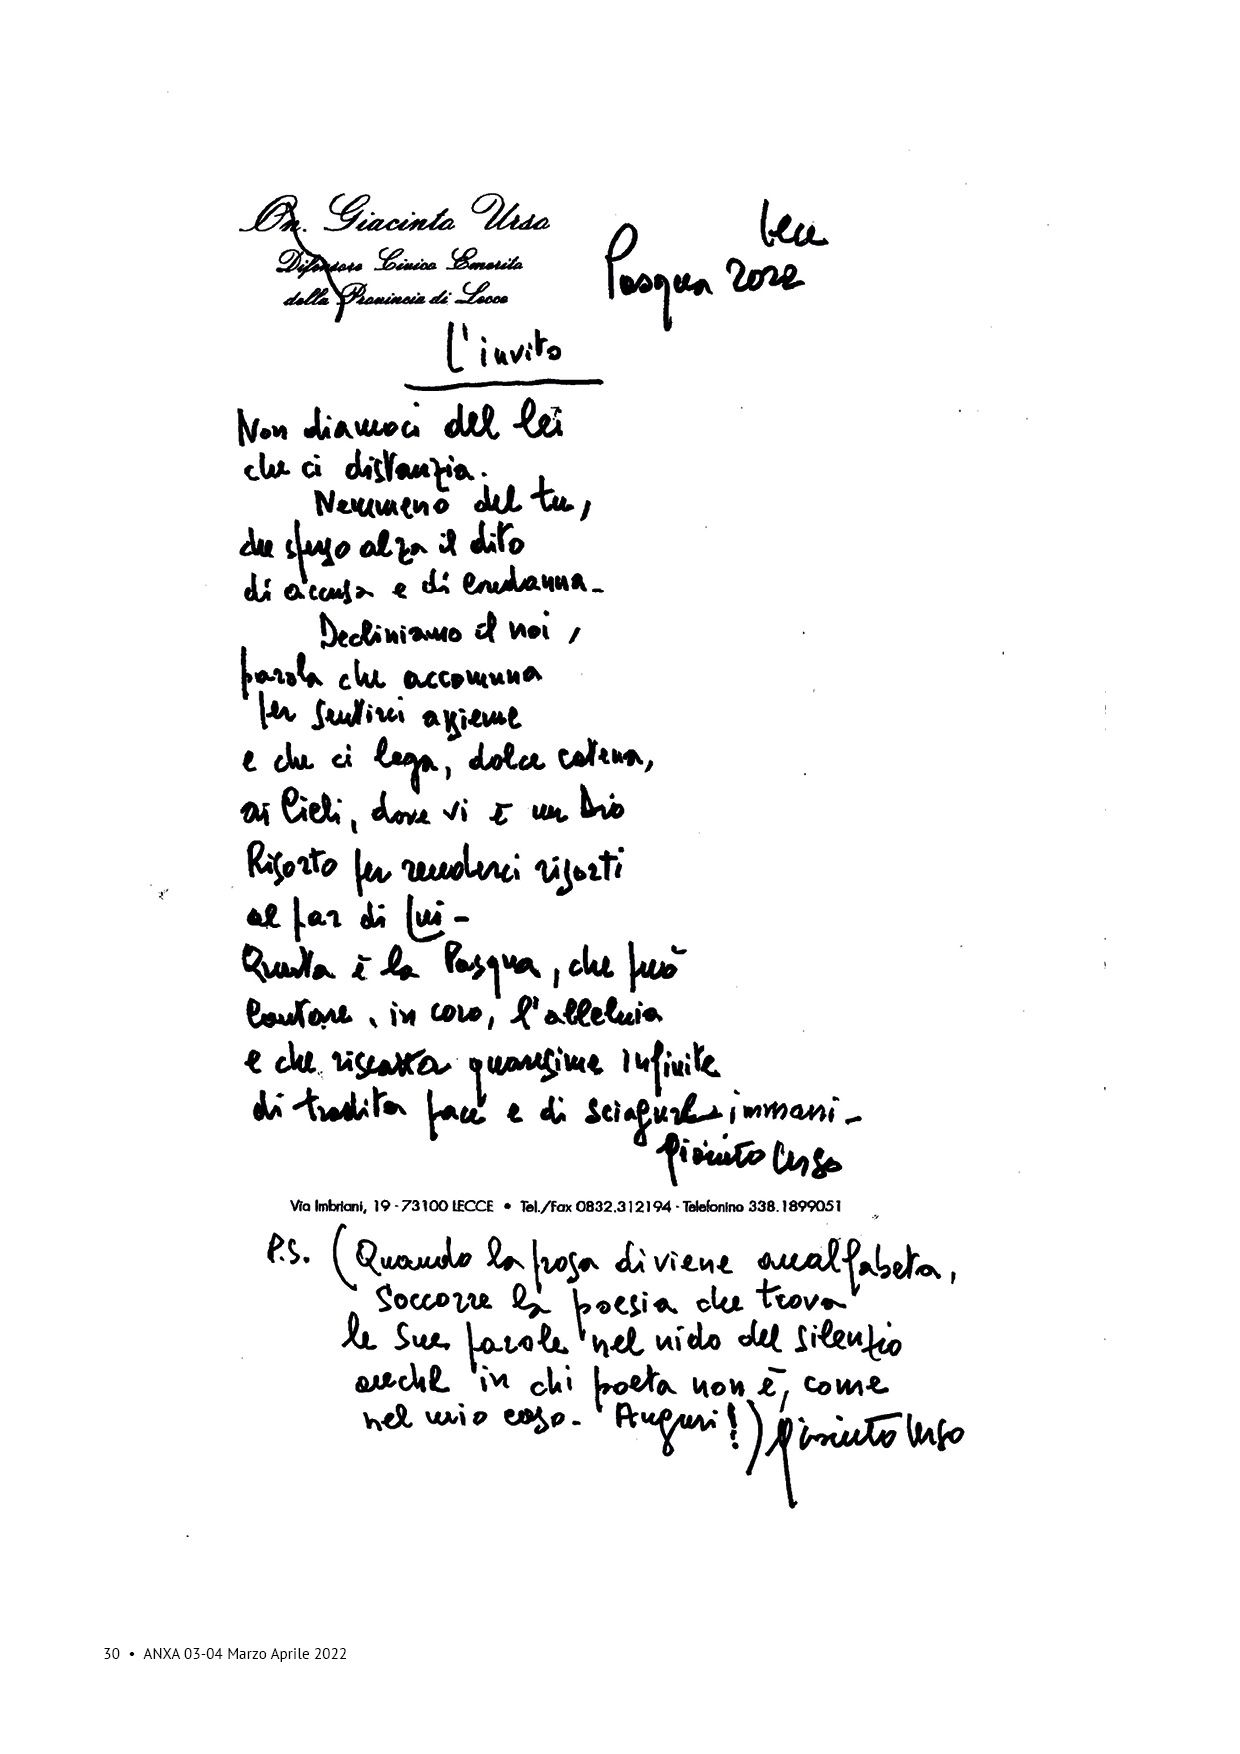 On. Giacinto Urso
Difensore Civico Emerito
della Provincia di Lecce
Lecce
Pasqua 2022
L'invito
Non diamoci del lei
che ci distanzia.
Nemmeno del tu,
che spesso alza il dito
di accusa e di condanna-
Decliniamo il noi,
parola che accomuna
per sentirci assieme
e che ci lega, dolce catena,
ai Cieli, dove vi è un Dio
Risorto per renderci risorti
al par di Lui-
Questa è la Pasqua, che può
cantare, in coro, l'alleluia
e che riscatta quaresime infinite
di tradita pace e di sciagure immani-
Giacinto Urso
Via Imbriani, 19 - 73100 LECCE • Tel./Fax 0832.312194 - Telefonino 338.1899051
P.S. (Quando la prosa diviene analfabeta,
soccorre la poesia che trova
le sue parole nel nido del silenzio
anche in chi poeta non è, come
nel mio caso- Auguri!) Giacinto Urso
30 • ANXA 03-04 Marzo Aprile 2022